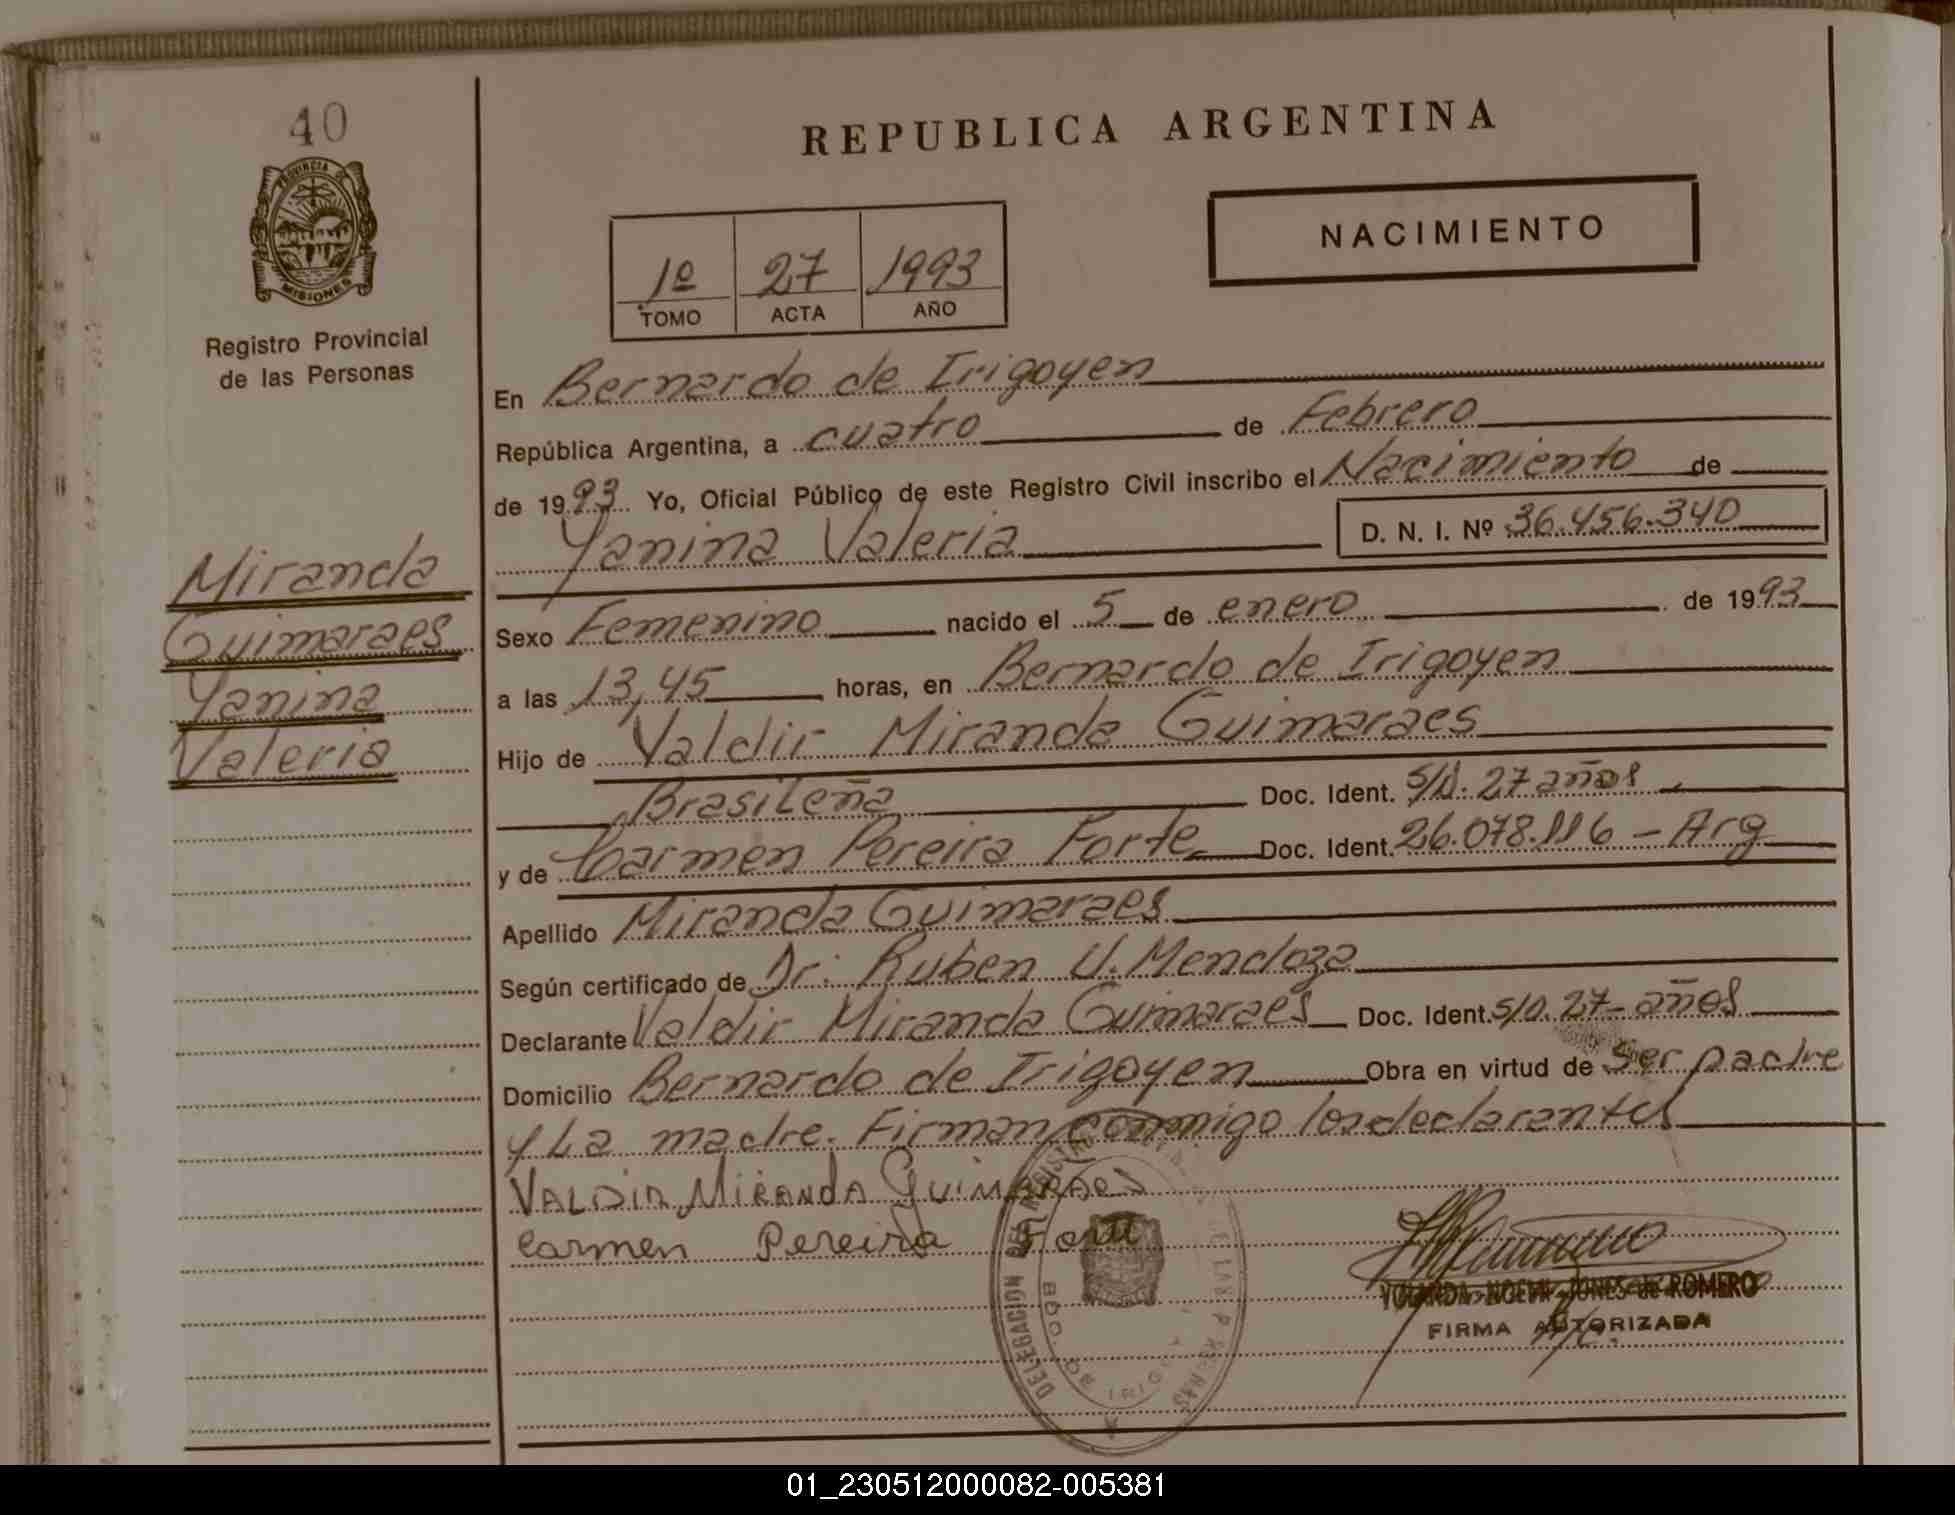 40
PROVINCIA DE
MISIONES
Registro Provincial
de las Personas
Miranda
Guimaraes
Yanina
Valeria
REPUBLICA ARGENTINA
NACIMIENTO
1º 27 1993
TOMO ACTA AÑO
En Bernardo de Irigoyen
República Argentina, a cuatro de Febrero
de 1993 Yo, Oficial Público de este Registro Civil inscribo el Nacimiento de
Yanina Valeria D. N. I. Nº 36.456.340
Sexo Femenino nacido el 5 de enero de 1993
a las 13,45 horas, en Bernardo de Irigoyen
Hijo de Valdir Miranda Guimaraes
Brasileña Doc. Ident. S/D. 27 años
y de Carmen Pereira Forte Doc. Ident. 26.078.116 - Arg
Apellido Miranda Guimaraes
Según certificado de Dr. Ruben U. Mendoza
Declarante Valdir Miranda Guimaraes Doc. Ident. S/D. 27- años
Domicilio Bernardo de Irigoyen Obra en virtud de ser padre
y La madre. Firman conmigo los declarantes
VALDIR MIRANDA GUIMARAES
Carmen Pereira Forte
YOLANDA NOEMI JONES de ROMERO
FIRMA AUTORIZADA
DELEGACION DEL REGISTRO DE LAS PERSONAS
BDO. DE IRIGOYEN
01_230512000082-005381